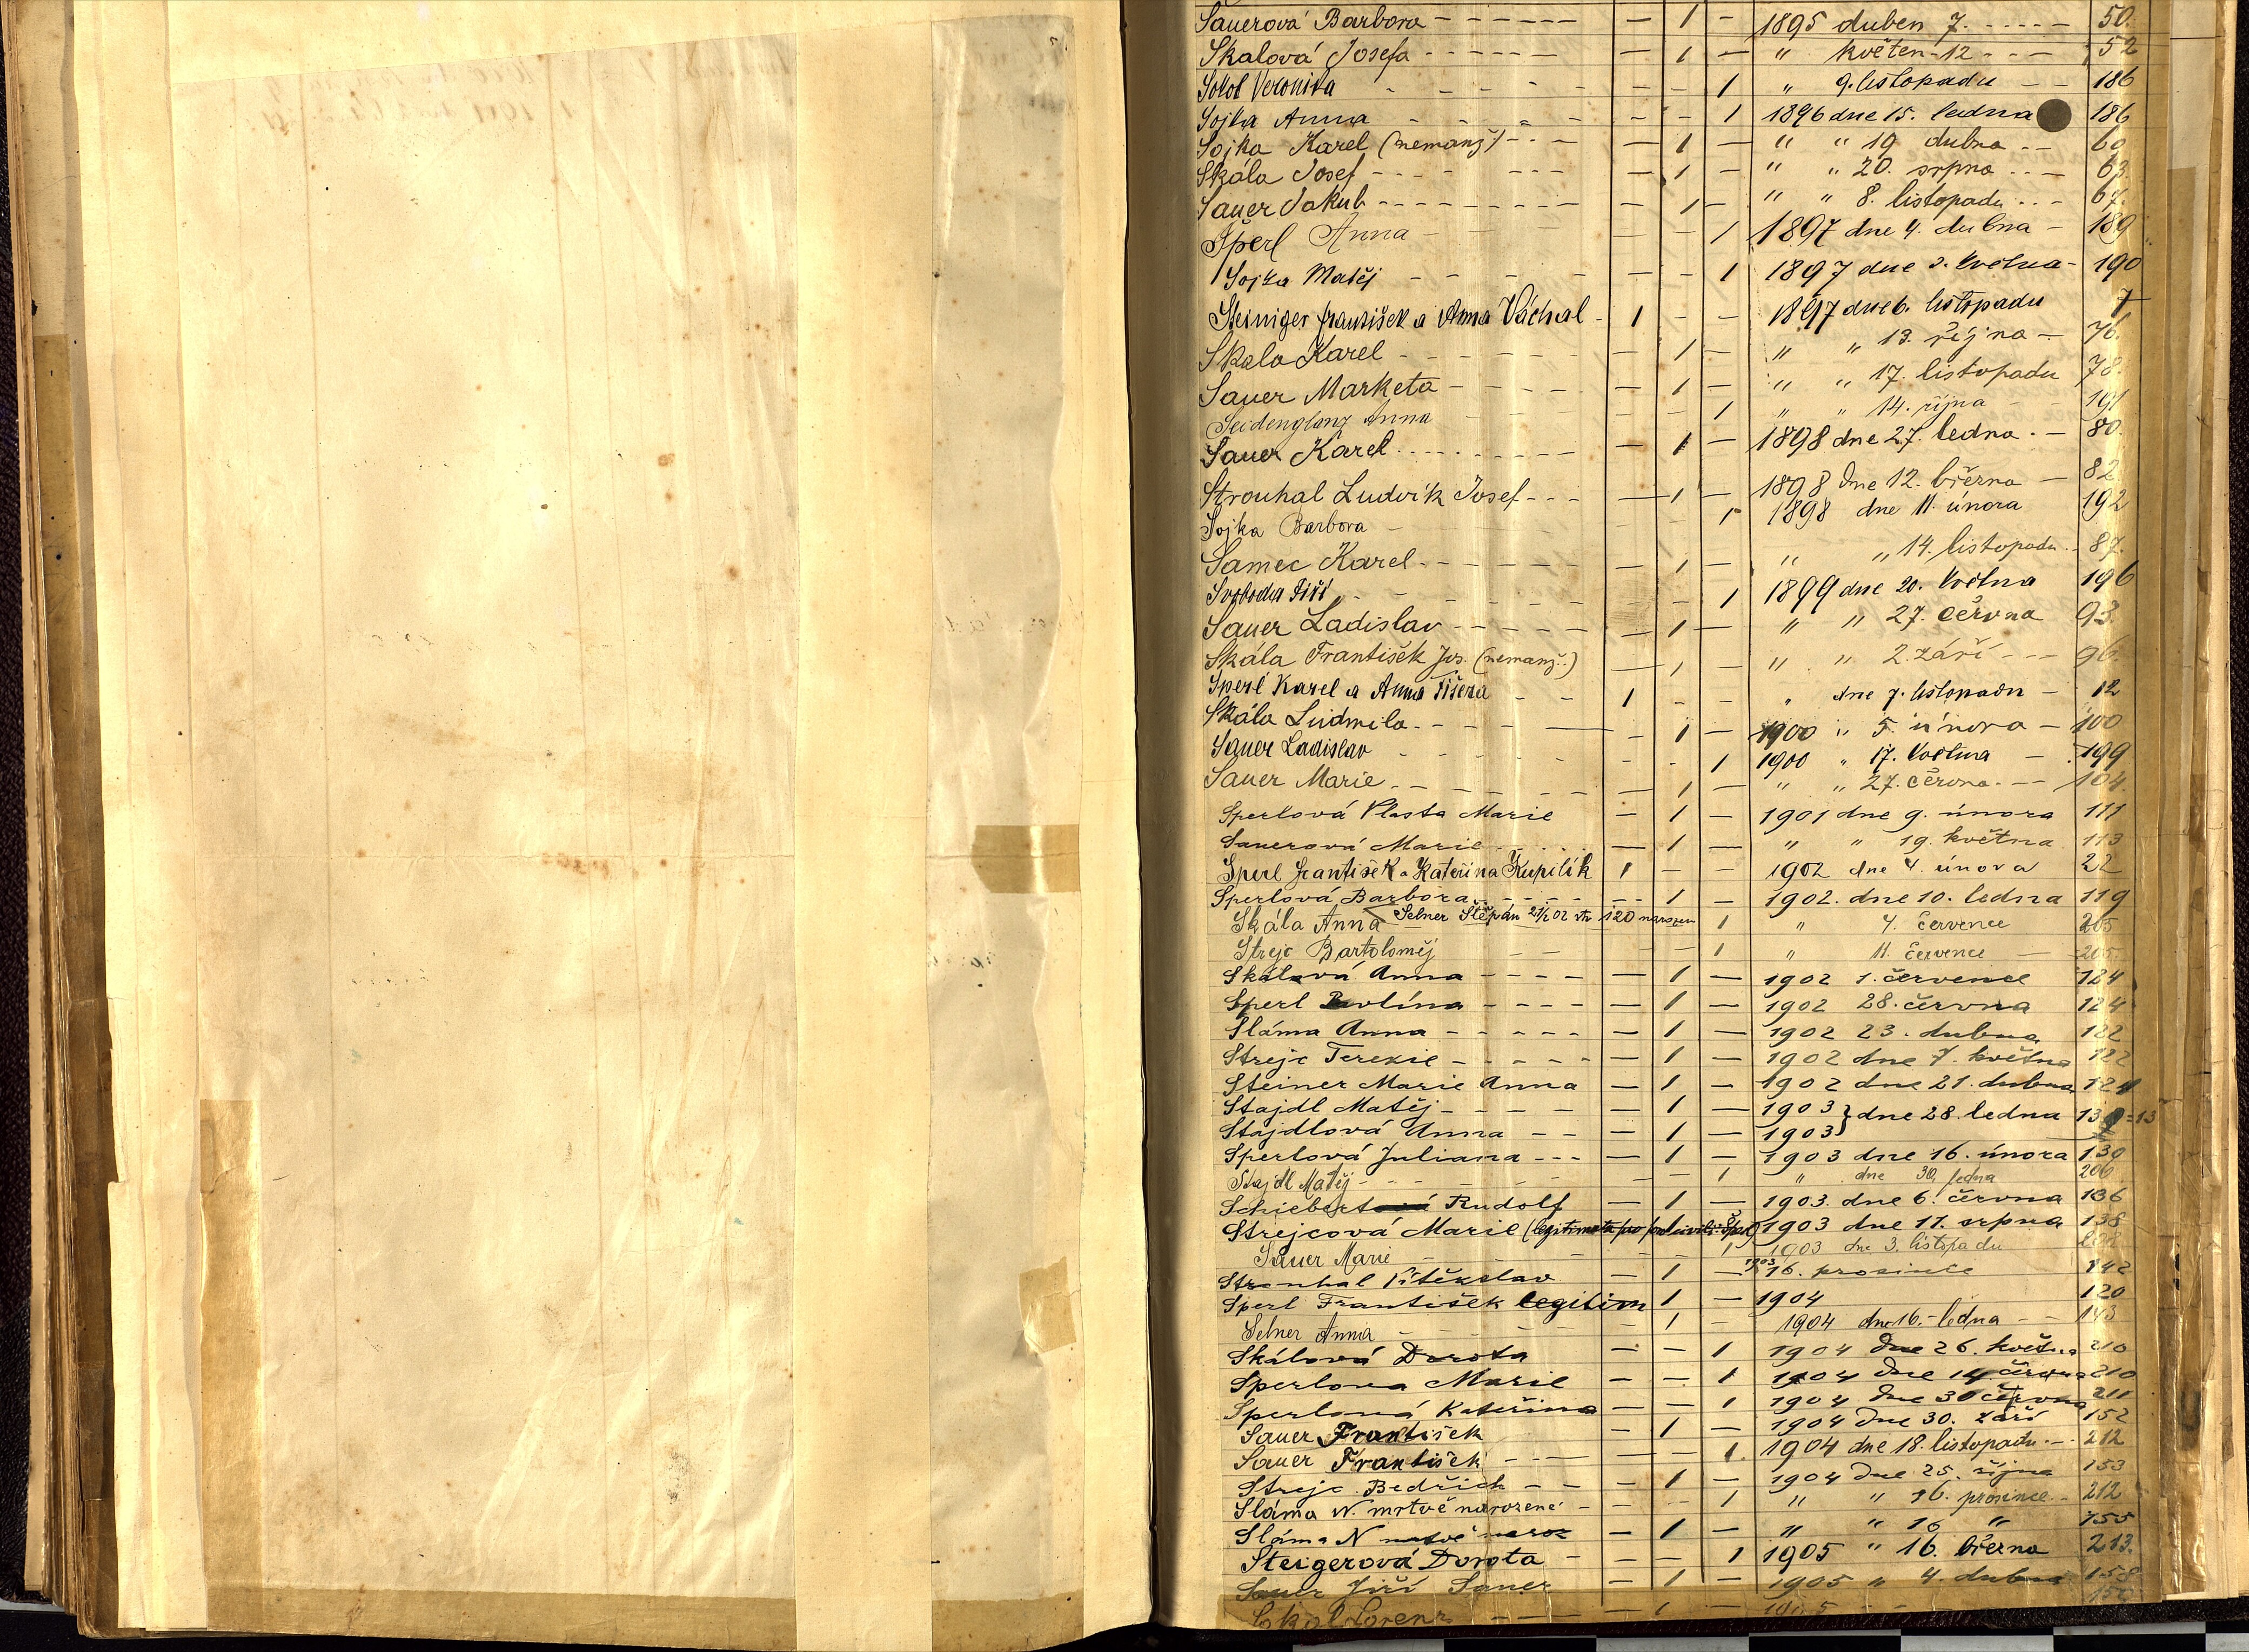 Sauerová Barbora - - - - - - — 1 — 1895 duben 7. - - - - — 50.
Skalová Josefa - - - - - - — 1 — " květen - 12 - - - 52
Sokol Veronika - - - - - - — — 1 " 9. listopadu — — 186
Sojka Anna - - - - - — — 1 1896 dne 15. ledna 186
Sojka Karel (nemanž.) - - - — 1 — " " 19 dubna - - 60
Skála Josef - - - - - - - — 1 — " " 20. srpna - - — 63.
Sauer Jakub - - - - - - - - — 1 — " " 8. listopadu - - - 67.
Šperl Anna - - - - — — 1 1897 dne 4. dubna - 189
Sojka Matěj - - - - - — — 1 1897 dne 2. května - 190
Steiniger František a Anna Váchal - 1 - - 1897 dne 6. listopadu 7
Skala Karel - - - - - - - — 1 — " " 13. října - - 76.
Sauer Marketa - - - - - — 1 — " " 17. listopadu 78.
Seidenglanz Anna - - - - - - 1 " " 14. října - - 191
Sauer Karel - - - - - - - - - — 1 — 1898 dne 27. ledna. - 80.
Strouhal Ludvík Josef - - - — 1 — 1898 dne 12. března — 82
Sojka Barbora - - - - - 1 1898 dne 11. února 192
Samec Karel - - - - - - — 1 — " " 14. listopadu. - 87.
Svoboda Jiří - - - - - - - — 1 1899 dne 20. května 196
Sauer Ladislav - - - - - — 1 — " " 27. června 93.
Skála František Jos. (nemanž.) — 1 — " " 2. září - - - 96.
Sperl Karel a Anna Tišera - - 1 - - " dne 7. listopadu - 12
Skála Ludmila - - - - — - 1 — 1900 " 5. února — 100
Sauer Ladislav - - - - - - - - 1 1900 " 17. května — 199
Sauer Marie - - - - - - — 1 — " " 27. června. - — 104.
Sperlová Vlasta Marie — 1 — 1901 dne 9. února 111
Sauerová Marie - - - - — 1 — " " 19. května 113
Sperl František a Kateřina Kupilík 1 — — 1902 dne 4. února 22
Sperlová Barbora - - - - - - 1 — 1902. dne 10. ledna 119
Skála Anna Selner Štěpán 21/2 02 str 120 narozen 1 " 4. července 205
Strejc Bartoloměj - - - - 1 " 11. července — 205.
Skálová Anna - - - - — 1 — 1902 1. července 124
Sperl Pavlína - - - - — 1 — 1902 28. června 124
Sláma Anna - - - - - — 1 — 1902 23. dubna 122
Strejc Terezie - - - - - — 1 — 1902 dne 7. května 122
Steiner Marie Anna — 1 — 1902 dne 21. dubna 121
Stajdl Matěj - - - - - — 1 — 1903 } dne 28. ledna
Stajdlová Anna - - — 1 — 1903 }
Sperlová Juliana - - - — 1 — 1903 dne 16. února 130
Stajdl Matěj - - - - - - — — 1 " dne 30. ledna 206
Schiebert Rudolf — 1 — 1903. dne 6. června 136
Strejcová Marie (legitimota 1903 dne 11. srpna 138
Sauer Marie - - - - - - 1 1903 dne 3. listopadu 208
Strouhal Vítězslav — 1 — 1903 16. prosince 142
Sperl František legitim 1 — 1904 120
Selner Anna - - - - - 1 - 1904 dne 16. - ledna - - 143
Skálová Dorota — — 1 1904 dne 26. května 210
Sperlova Marie — — 1 1904 dne 14. června 210
Sperlová Kateřina — — 1 1904 dne 30 června 211
Sauer František — 1 — 1904 dne 30. září 152
Sauer František - - — — — 1. 1904 dne 18. listopadu. - - 212
Strejc Bedřich - - — 1 — 1904 dne 25. října 153
Sláma N. mrtvě narozené - - - 1 " " 16. prosince - 212
Sláma N mrtvě naroz — 1 — " " 16 " 155
Steigerová Dorota - — — 1 1905 " 16. března 213.
Sauer Jiří Sauer — 1 — 1905 " 4. dubna 158
Lorenz - - — — 1 — 1905